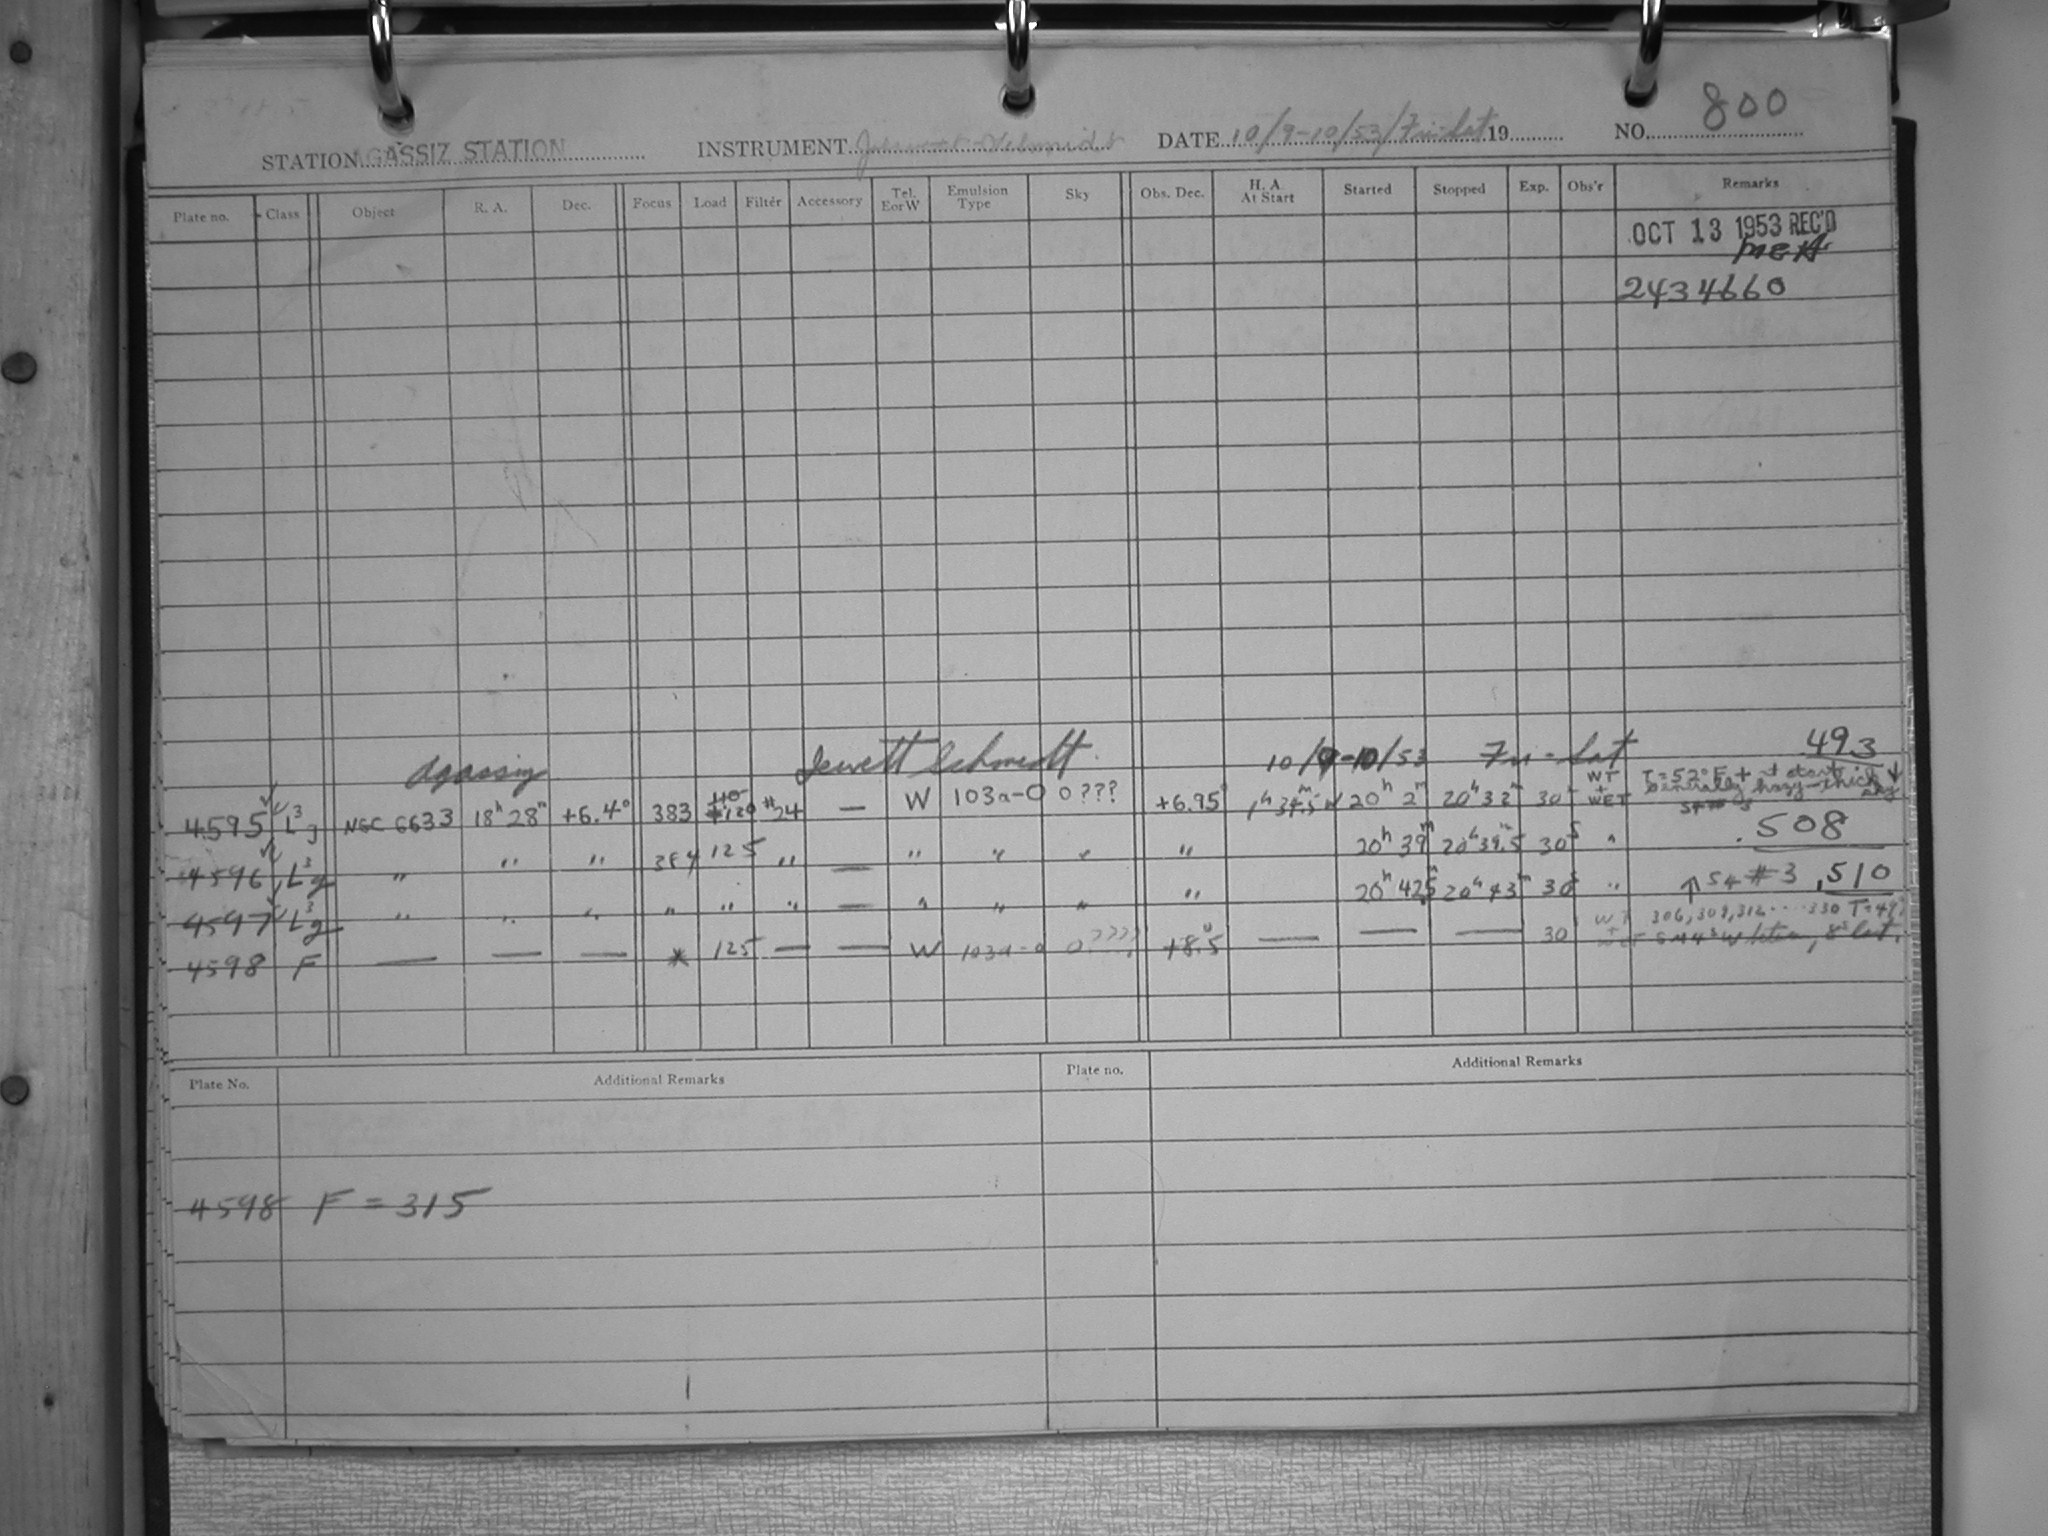 800
STATION AGASSIZ STATION INSTRUMENT Jewett Schmidt DATE 10/9-10/53/Fri-Sat 19 NO.
Plate no. Class Object R. A. Dec. Focus Load Filter Accessory Tel. E or W Emulsion Type Sky Obs. Dec. H. A. At Start Started Stopped Exp. Obs'r Remarks
OCT 13 1953 REC'D
2434660
Agassiz Jewett Schmidt 10/9-10/53 Fri-Sat .493
4595 L3g NGC 6633 18h 28m +6.4° 383 #24 — W 103a-O 0??? +6.95° 20h 2m 20h 32m 30m WT + WET T=52°F + at start
Generally hazy - thick
4596 L3g " " " 384 125 " — " " " " 20h 39m 20h 39.5m 30s " .508
4597 L3g " " " " " " — " " " " 20h 42.5m 20h 43m 30s " ↑ S4 #3 .510
4598 F — — — * 125 — — W 103a-O 0???? +8.5° — — — 30 WT + WET 306, 309, 312 .... 330
Plate No. Additional Remarks Plate no. Additional Remarks
4598 F = 315